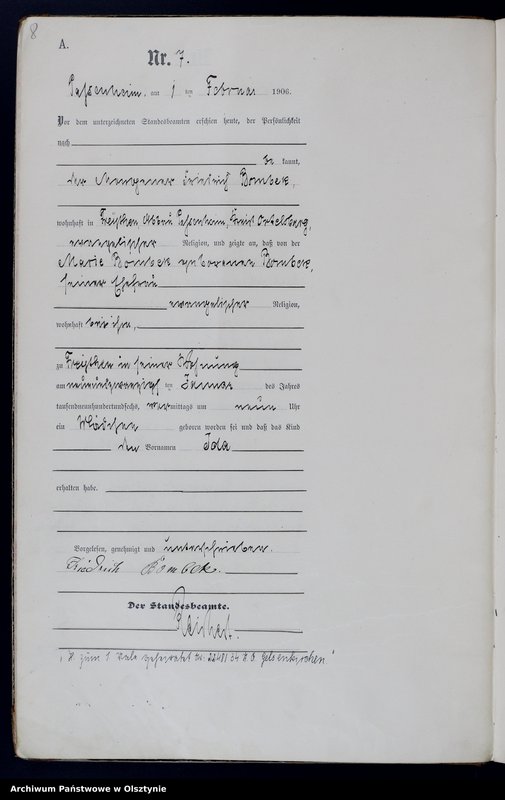 8
A.
Nr. 7.
Passenheim, am 1 ten Februar 1906.
Vor dem unterzeichneten Standesbeamten erschien heute, der Persönlichkeit
nach
be kannt,
der Friedrich Bombek,
wohnhaft in Abbau Passenheim, Kreis Ortelsburg,
evangelischer Religion, und zeigte an, daß von der
Marie Bombek geborenen Bombek,
seiner Ehefrau
evangelischer Religion,
wohnhaft bei ihm,
zu in seiner Wohnung
am neunundzwanzigsten Januar des Jahres
tausendneunhundertundsechs, vormittags um neun Uhr
ein Mädchen geboren worden sei und daß das Kind
den Vornamen Ida
erhalten habe.
Vorgelesen, genehmigt und unterschrieben.
Friedrich Bombek.
Der Standesbeamte.
Reichert.
zum 1. Male geheiratet Nr. 34 Gelsenkirchen
Archiwum Państwowe w Olsztynie